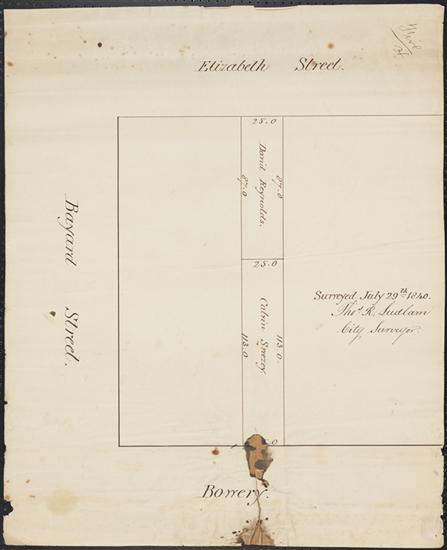 Elizabeth Street.
25.0
David Reynolds.
87.0
87.0
25.0
Calvin Sweezey.
113.0
113.0
Bayard Street.
Surveyed July 29th 1840.
Thos. R. Ludlam
City Surveyor.
Bowery.